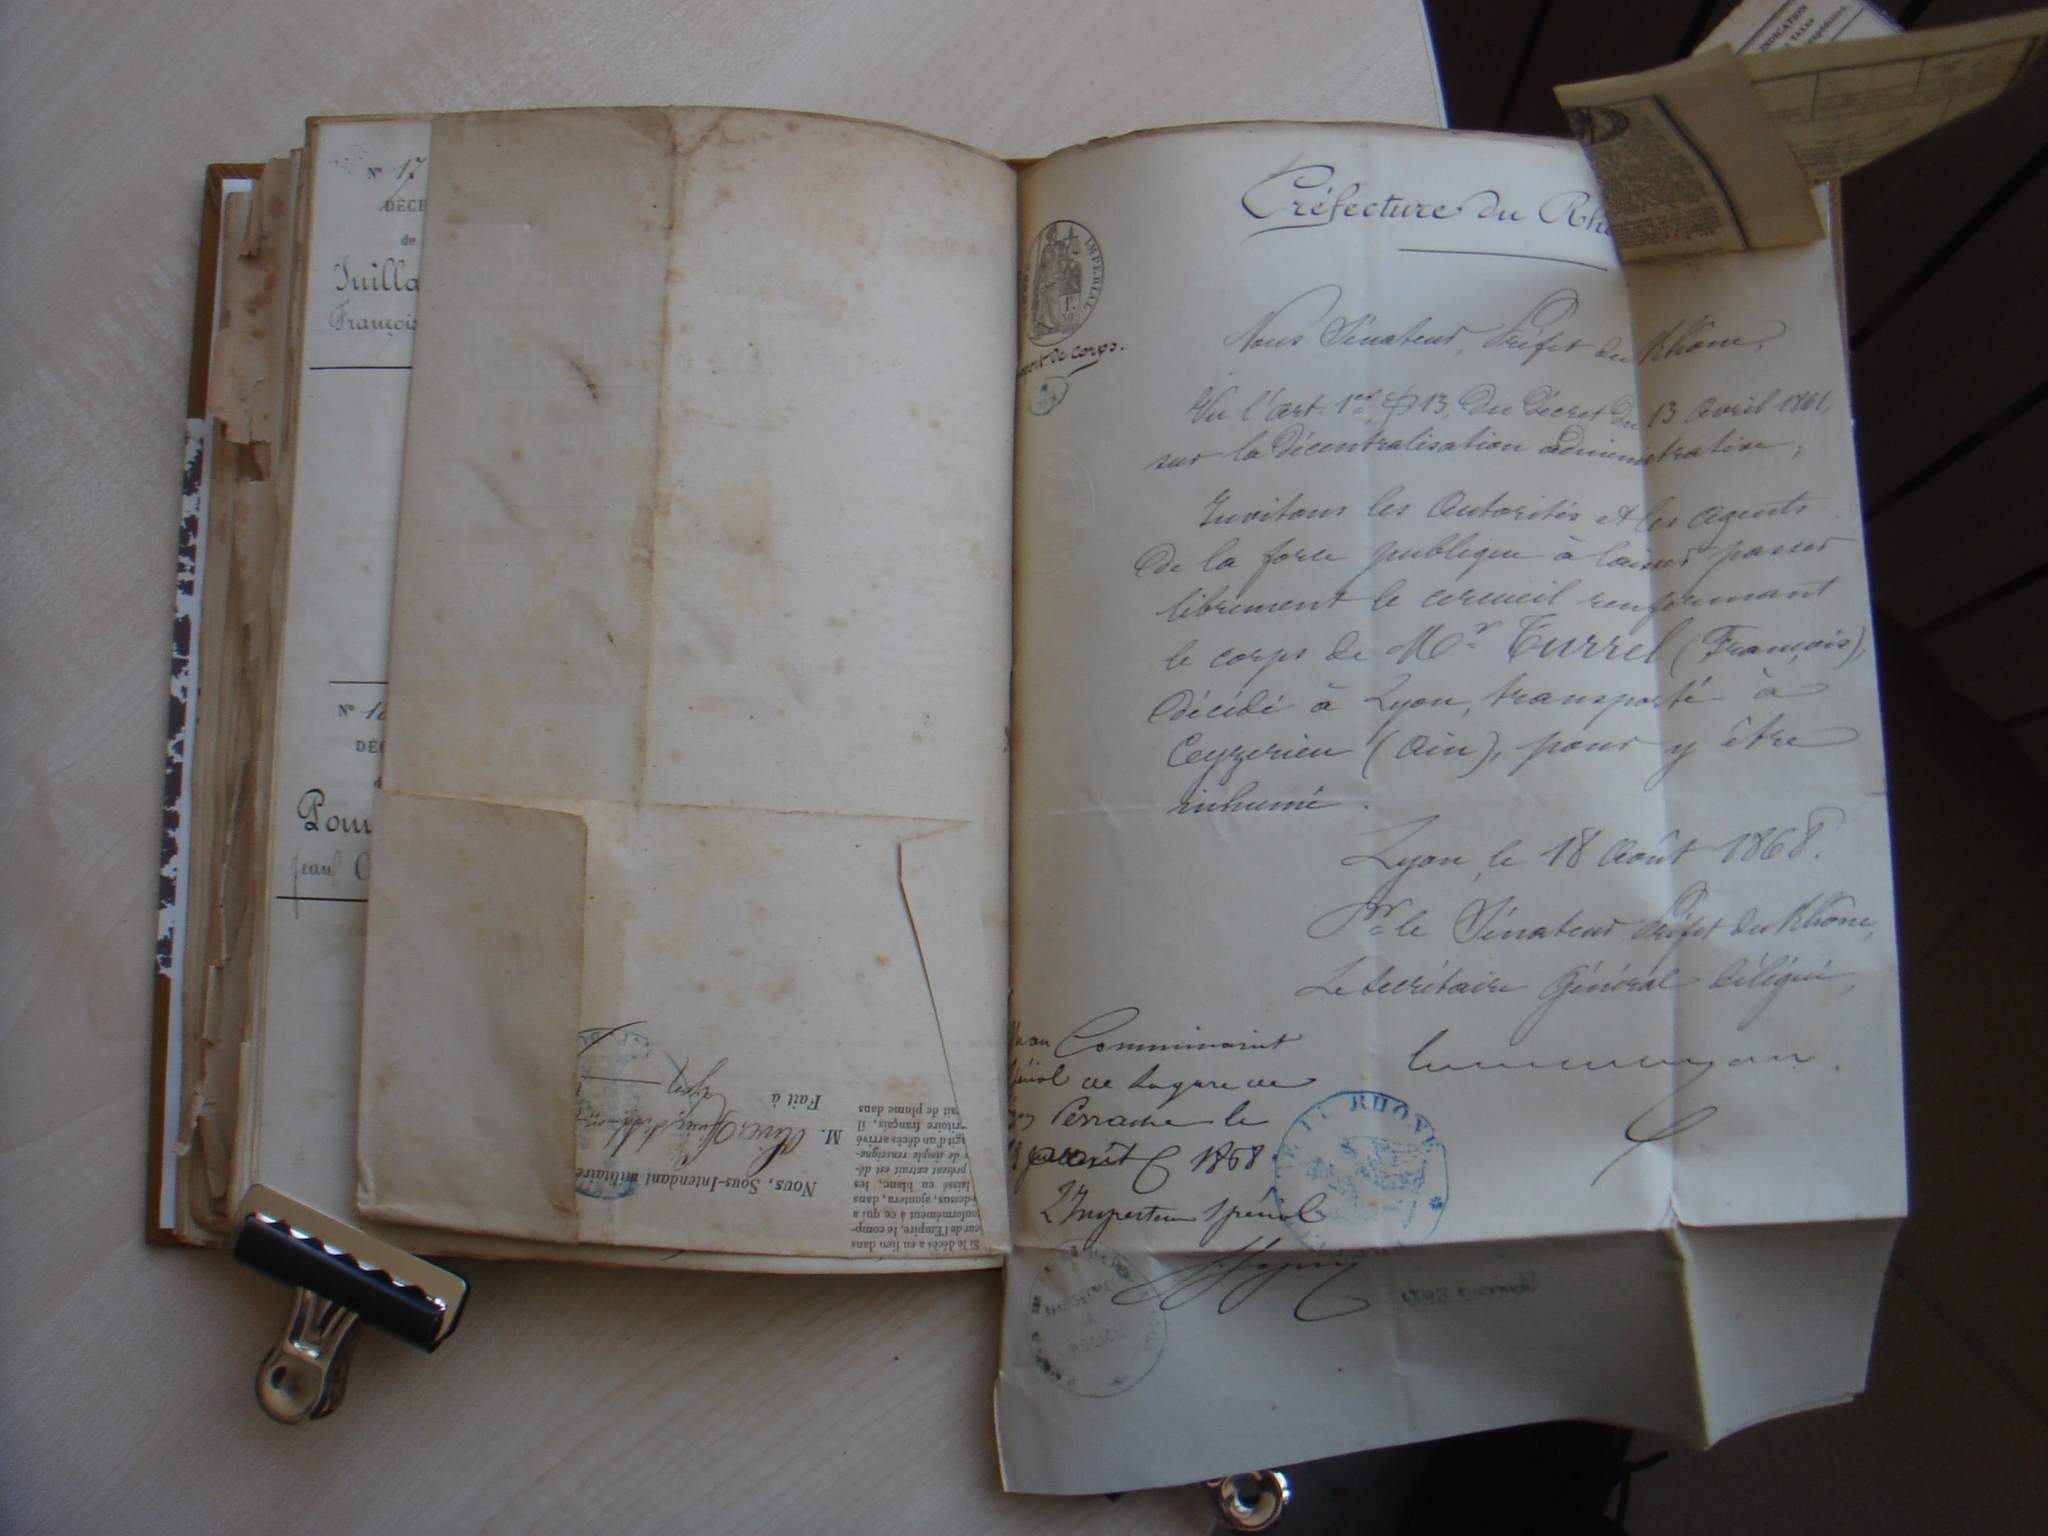 Nº 17
DÉCE
de
Juilla
François
Nº 18
DÉC
Pom
Jean C
Si le décès a eu lieu dans
eur de l'Empire, le comp-
onformément à ce qui a
-dessus, ajoutera, dans
laissé en blanc, les
présent extrait est dé-
de simple renseigne-
git d'un décès arrivé
ritoire français, il
rait de plume dans
Nous, Sous-Intendant militaire
M.
Fait à
Lyon
Préfecture du Rh
IMPÉRIAL
de corps.
Nous Sénateur, Préfet du Rhône,
Vu l'art. 1er § 13, du Décret du 13 Avril 1861,
sur la Décentralisation administrative,
Invitons les Autorités et les agents
de la force publique à laisser passer
librement le cercueil renfermant
le corps de Mr Turrel (François),
décédé à Lyon, transporté à
Ceyzerieu (Ain), pour y être
inhumé.
Lyon, le 18 Août 1868.
Pr le Sénateur Préfet du Rhône,
Le Secrétaire Général délégué,
Vu au Commissariat
spécial de la gare de
Lyon Perrache le
août 1868
L'Inspecteur spécial
RHÔNE
POLICE
INDICATION